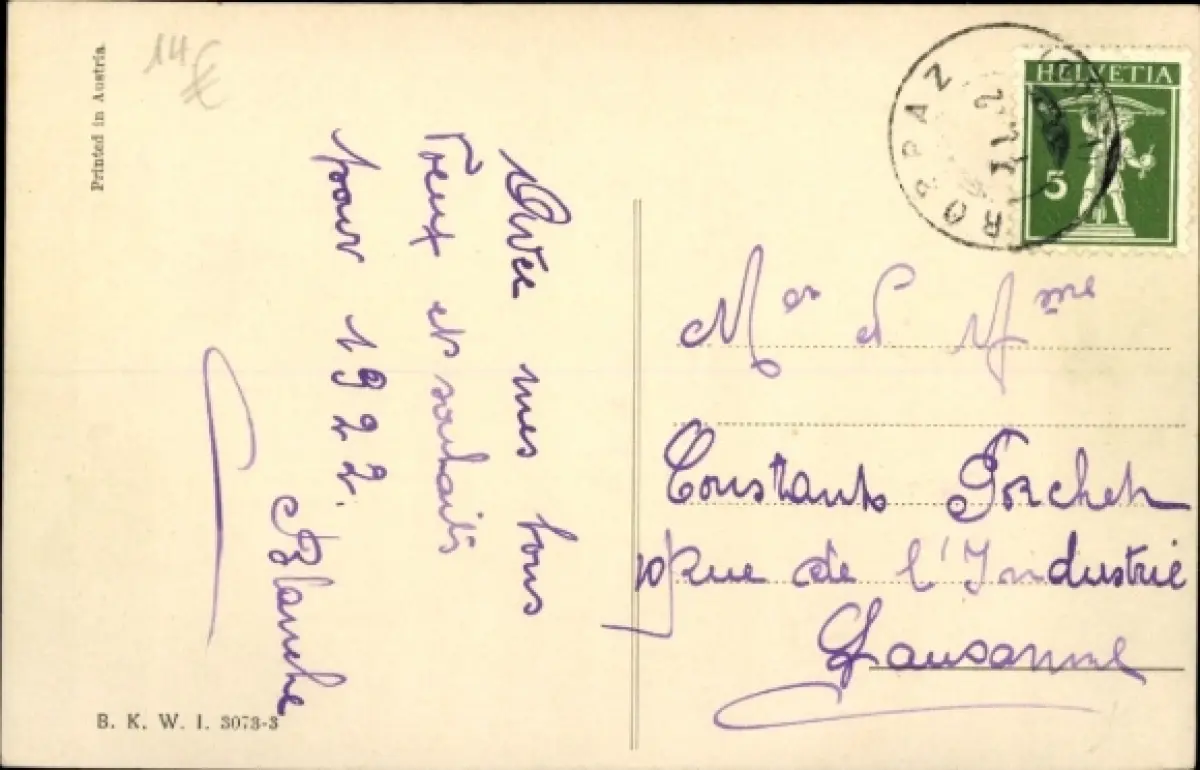 14€
Printed in Austria.
Avec mes bons
vœux et souhaits
pour 1922.
Blanche
B. K. W. I. 3073-3
ROPRAZ
HELVETIA
5
Mr et Mme
Constant Porchet
10 Rue de l'Industrie
Lausanne